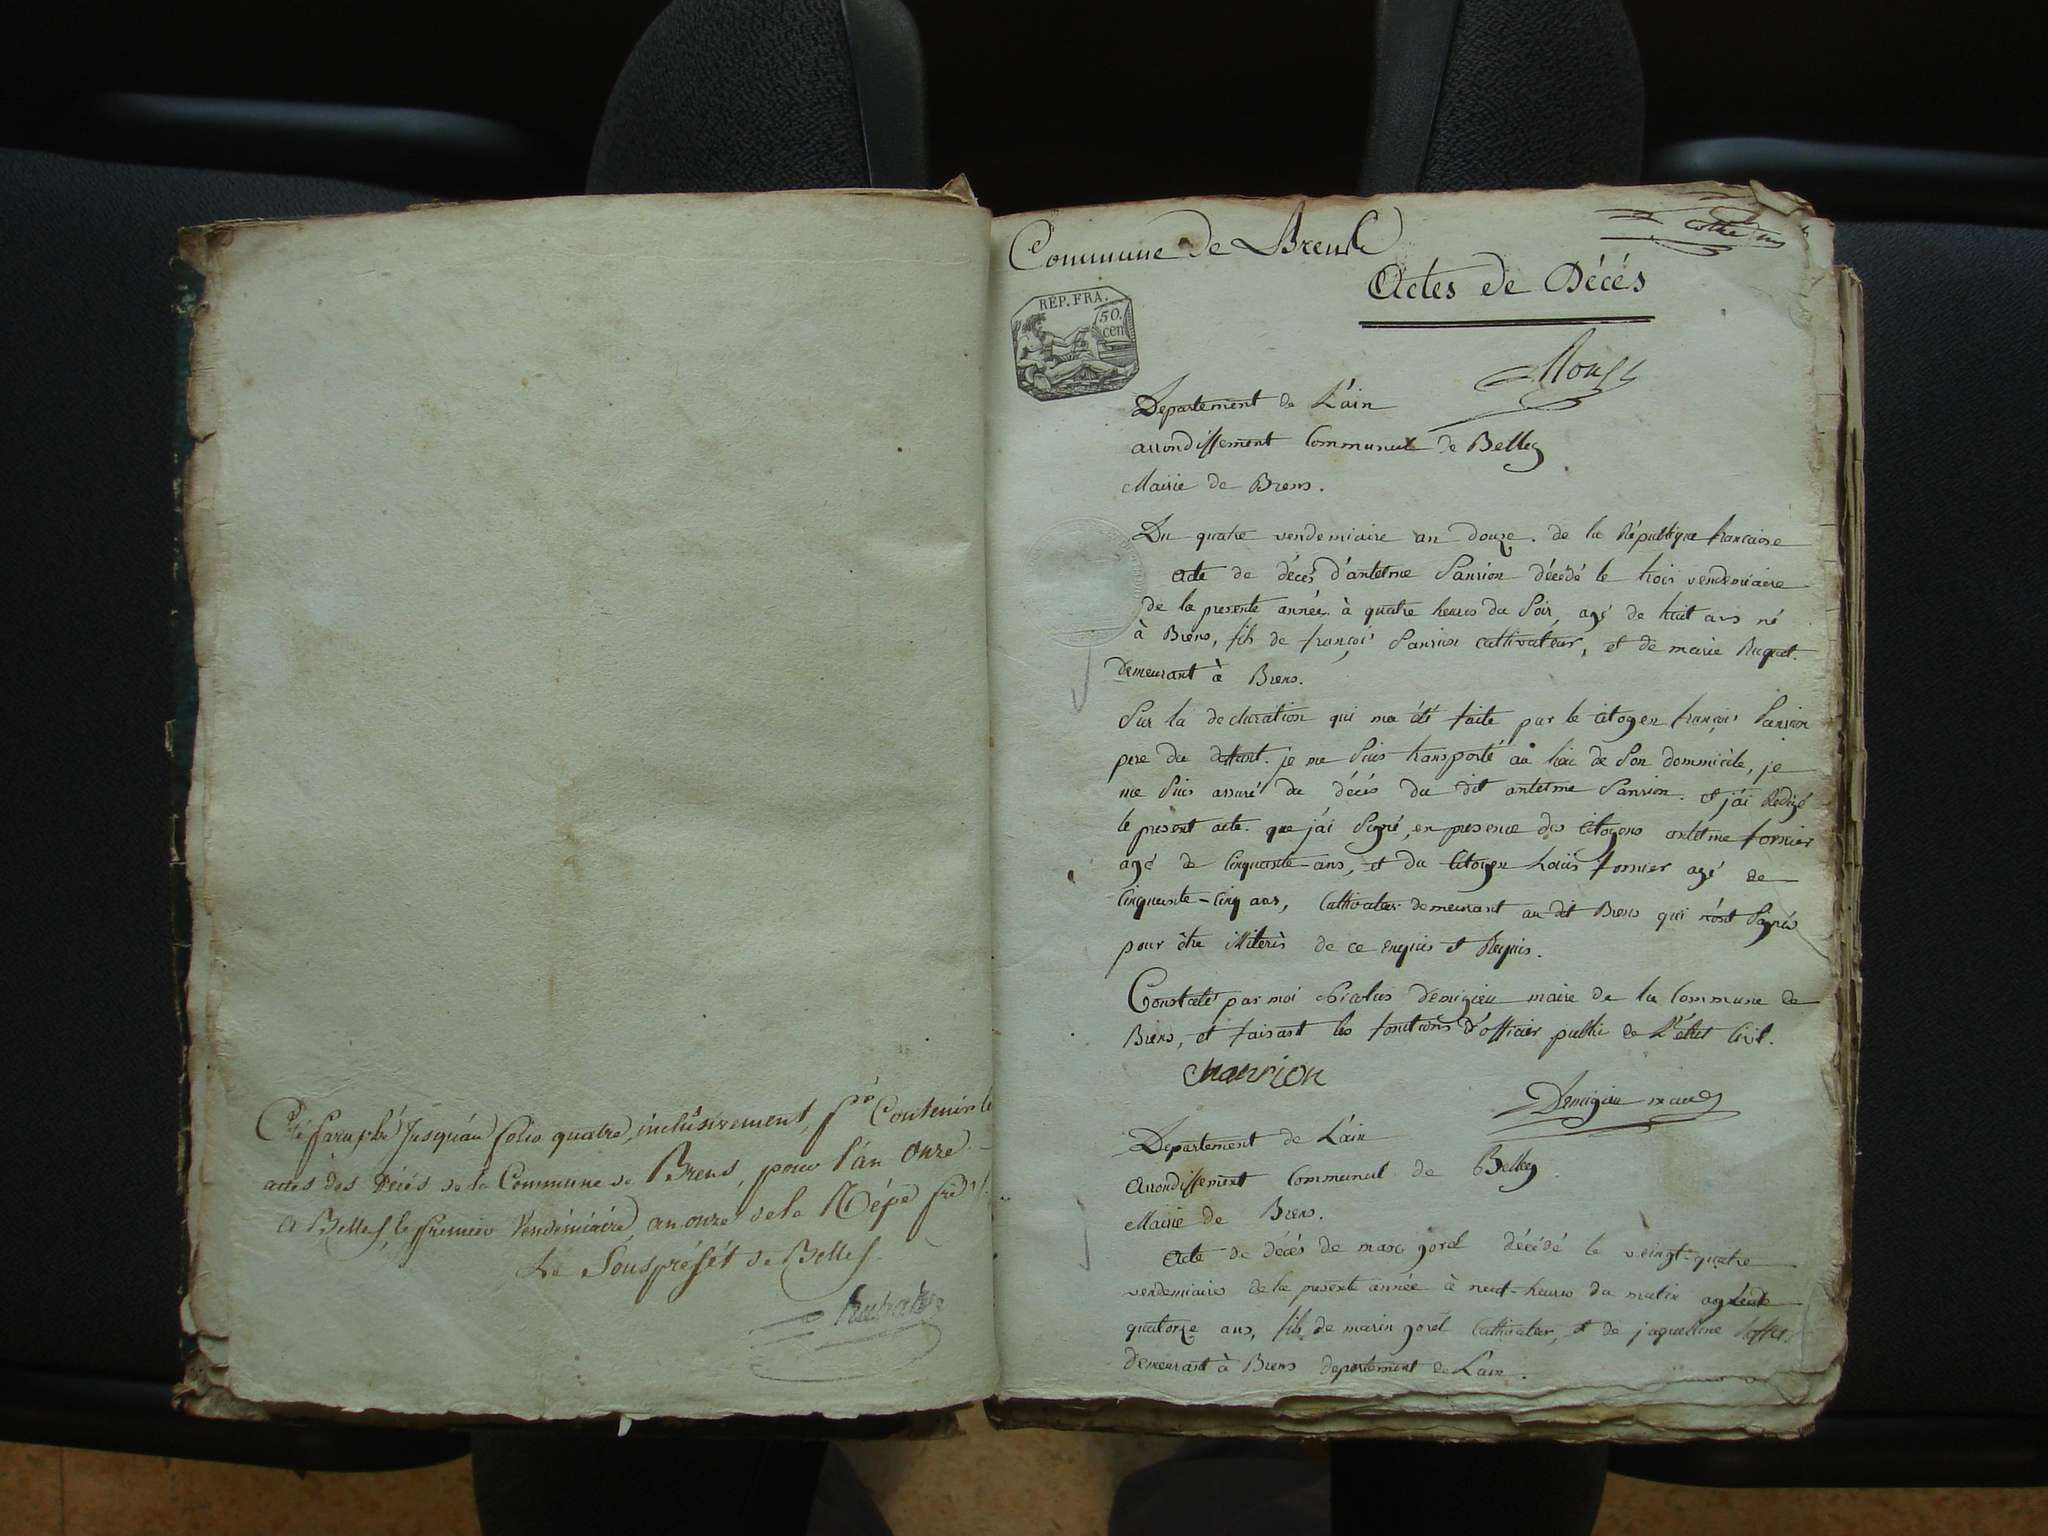 Cté parapké Jusqu'au folio quatre, inclusivement, pr Contenir le
actes des Décés de la Commune de Brens, pour l'an onze
a Belley, le premier Vendémiaire, an onze de la Répe
Le Souspréfét de Belley.
Commune de Brens
Actes de Décés
REP. FRA.
50.
cen
Departement de L'ain
arrondissement Communal de Belley
Mairie de Brens.
Du quatre vendemiaire an douze. de la République francaise
acte de décés d'antelme décédé le trois vendemiaire
de la presente année à quatre heures du Soir, agé de huit ans né
à Brens, fils de françois cultivateur, et de marie
demeurant à Brens.
Sur la declaration qui ma été faite par le Citoyen françois
pere du deffunt. je me Suis transporté au lieu de Son dommicile, je
me Suis assuré du décés du dit antelme et j'ai Rédigé
le present acte. que j'ai Signé, en presence des Citoyens antelme fornier
agé de Cinquante-ans, et du Citoyen Louis fornier agé de
Cinquante-Cinq ans, Cultivateur demeurant au dit Brens qui n'ont Signés
pour être illiterés de ce enquis et Requis.
Constaté par moi Nicolas Demigieu maire de la Commune de
Brens, et faisant les fonctions d'officier public de L'état Civil.
Demigieu maire
Departement de L'ain
Arrondissement Communal de Belley
Mairie de Brens.
Acte de décés de marc gorel décédé le veingt-quatre
vendemiaire de la presente année à neuf-heures du matin agé de
quatorze ans, fils de marin gorel Cultivateur, et de jaqueline
demeurant à Brens departement de Lain.